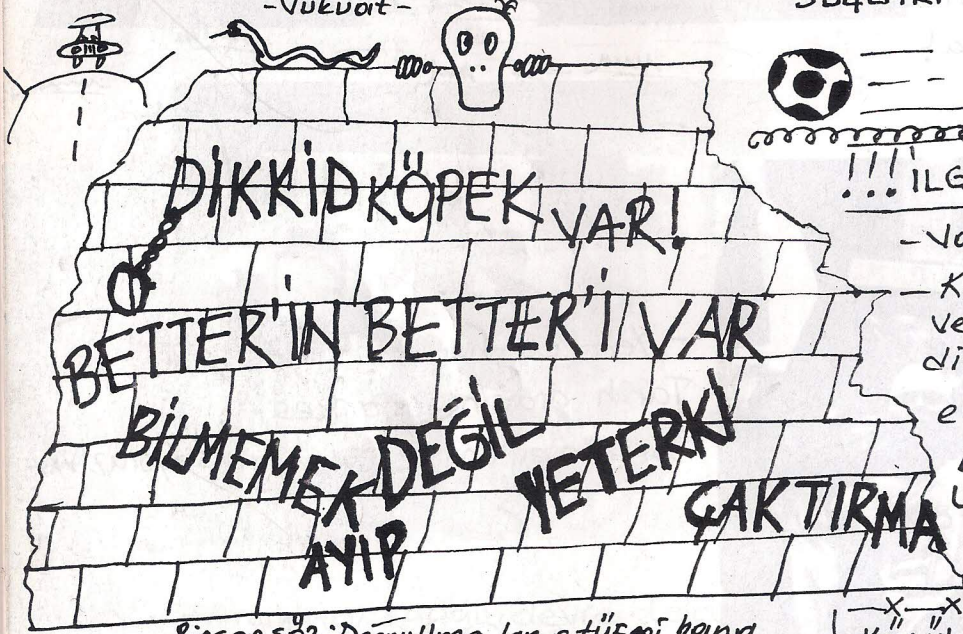 -Vukuat-
DİKKİD KÖPEK VAR!
BETTER'İN BETTER'İ VAR
BİLMEMEK DEĞİL
AYIP
YETERKİ
ÇAKTIRMA
!!! İLG
- Va
- K
ve
di
e